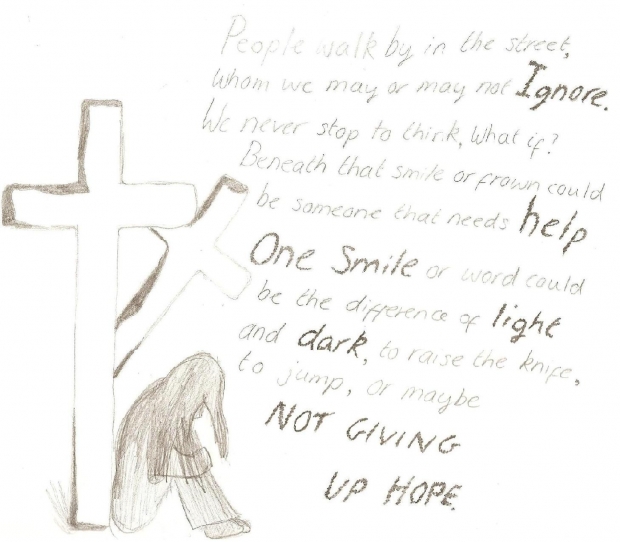 People walk by in the street,
whom we may or may not Ignore.
We never stop to think, What if?
Beneath that smile or frown could
be someone that needs help
One Smile or word could
be the difference of light
and dark, to raise the knife,
to jump, or maybe
NOT GIVING
UP HOPE.